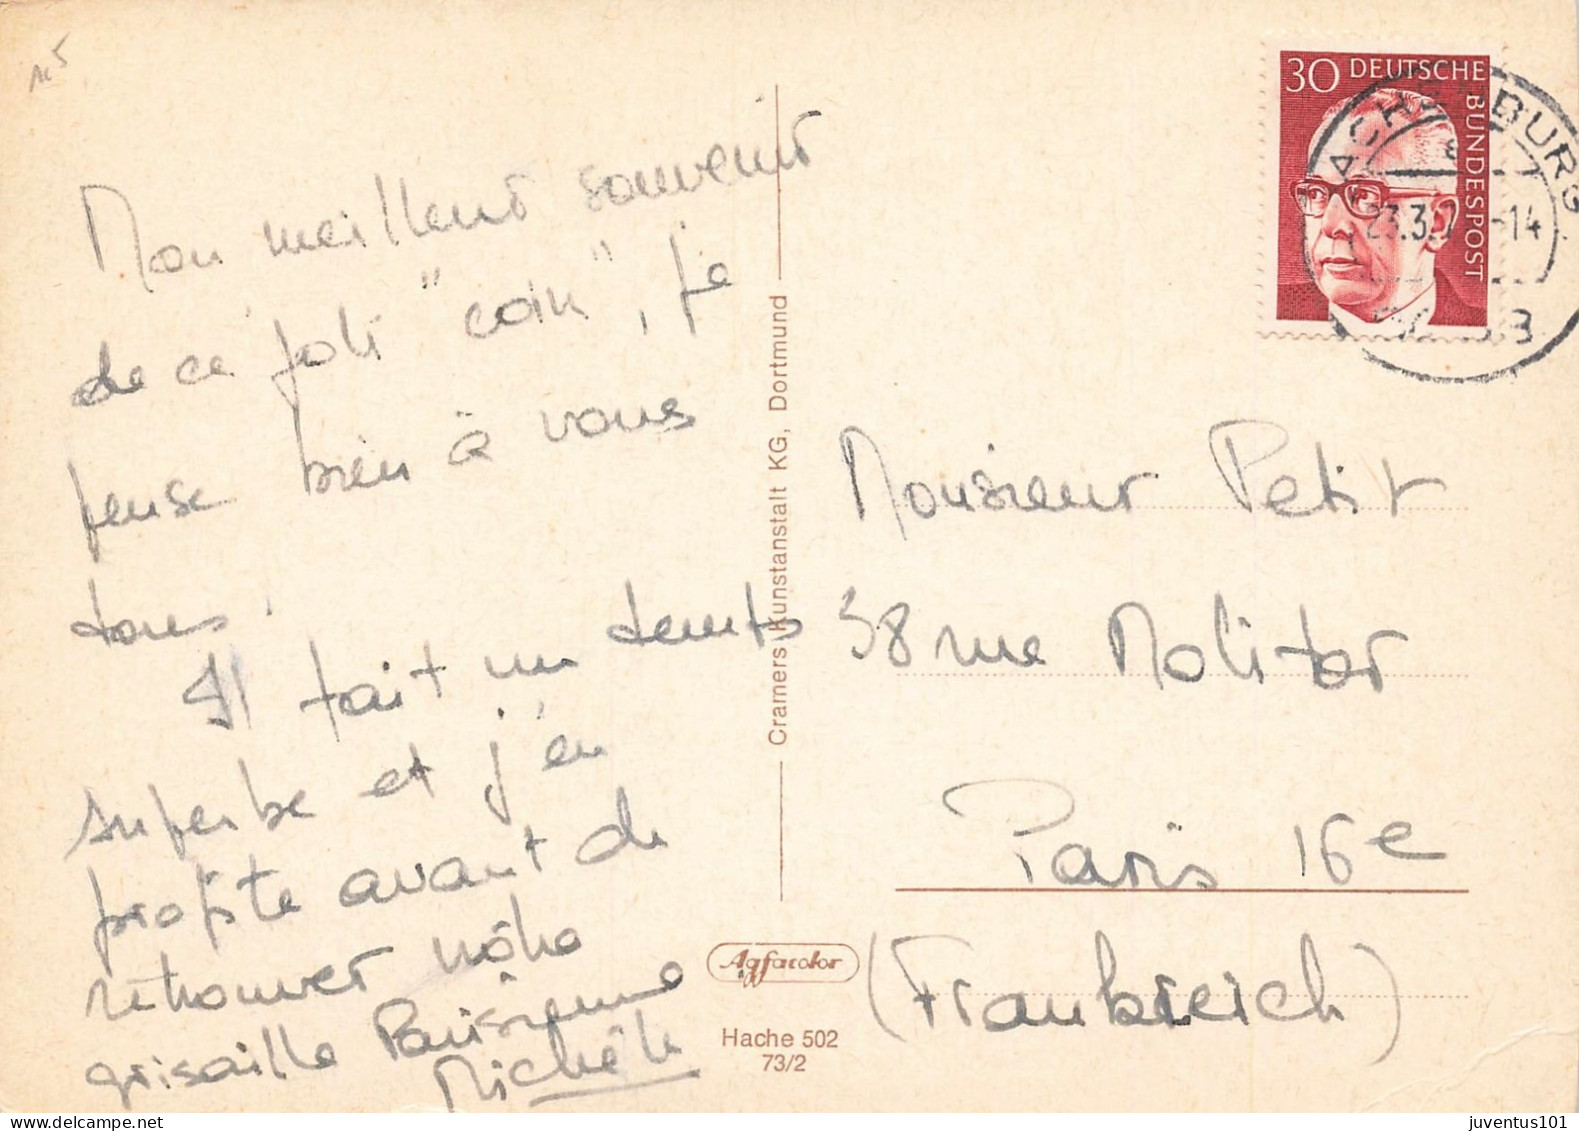 Mon meilleur souvenir
de ce joli "coin", je
pense bien à vous
tous.
Il fait un temps
superbe et j'en
profite avant de
retrouver nôtre
grisaille Parisienne
Michèle
Cramers Kunstanstalt KG, Dortmund
Agfacolor
Hache 502
73/2
30 DEUTSCHE
BUNDESPOST
HACHENBURG
23.3.7 -14
Monsieur Petit
38 rue Molitor
Paris 16e
(Frankreich)
juventus101